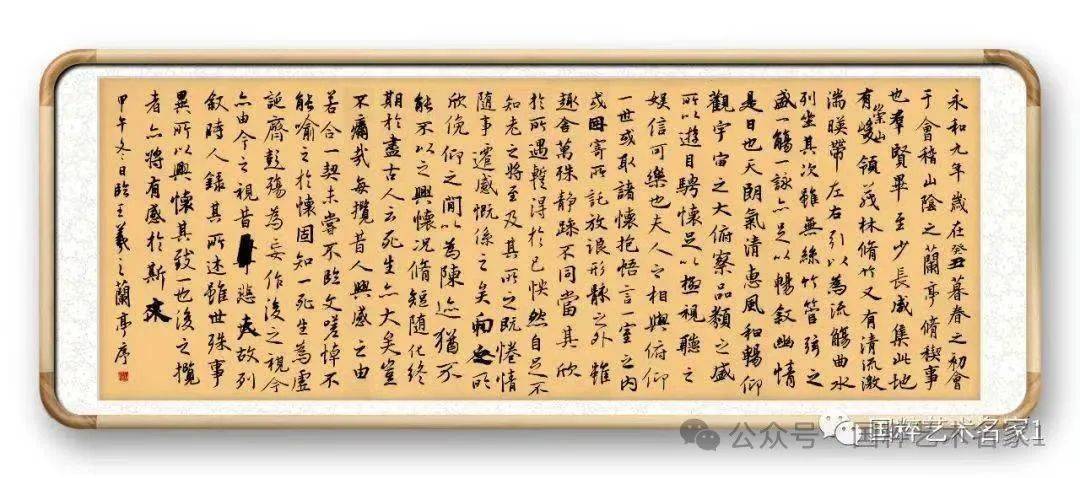 永和九年歲在癸丑暮春之初會
于會稽山陰之蘭亭脩稧事
也羣賢畢至少長咸集此地
有崇山峻領茂林脩竹又有清流激
湍暎帶左右引以為流觴曲水
列坐其次雖無絲竹管弦之
盛一觴一詠亦足以暢敘幽情
是日也天朗氣清惠風和暢仰
觀宇宙之大俯察品類之盛
所以遊目騁懷足以極視聽之
娛信可樂也夫人之相與俯仰
一世或取諸懷抱悟言一室之內
或因寄所託放浪形骸之外雖
趣舍萬殊靜躁不同當其欣
於所遇暫得於己怏然自足不
知老之將至及其所之既惓情
隨事遷感慨係之矣向之所
欣俛仰之間以為陳迹猶不
能不以之興懷況脩短隨化終
期於盡古人云死生亦大矣豈
不痛哉每攬昔人興感之由
若合一契未嘗不臨文嗟悼不
能喻之於懷固知一死生為虛
誕齊彭殤為妄作後之視今
亦由今之視昔悲夫故列
敘時人錄其所述雖世殊事
異所以興懷其致一也後之攬
者亦將有感於斯文
甲午冬日臨王羲之蘭亭序
国粹艺术名家1
公众号·国粹艺术名家1